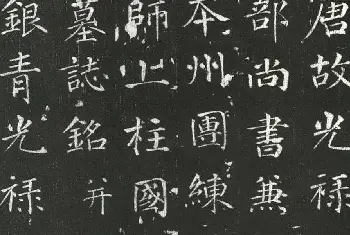 唐故光禄
部尚書兼
本州團練
師上柱國
墓誌銘并
銀青光禄